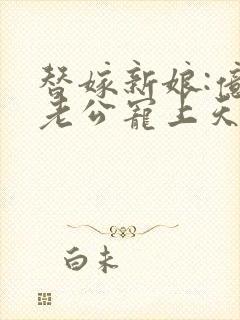 替嫁新娘:
老公寵上天
白未